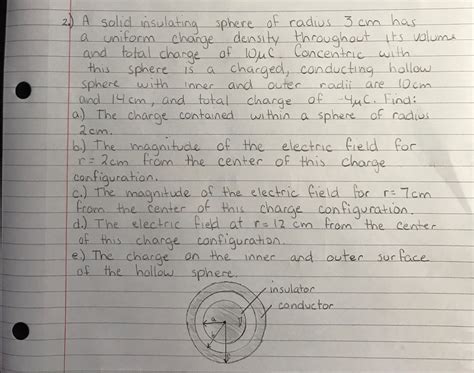 2.) A solid insulating sphere of radius 3 cm has
a uniform charge density throughout its volume
and total charge of 10μC. Concentric with
this sphere is a charged, conducting hollow
sphere with inner and outer radii are 10cm
and 14cm, and total charge of -4μC. Find:
a.) The charge contained within a sphere of radius
2cm.
b.) The magnitude of the electric field for
r= 2cm from the center of this charge
configuration.
c.) The magnitude of the electric field for r= 7cm
from the center of this charge configuration.
d.) The electric field at r= 12 cm from the center
of this charge configuration.
e.) The charge on the inner and outer surface
of the hollow sphere.
insulator
conductor
a